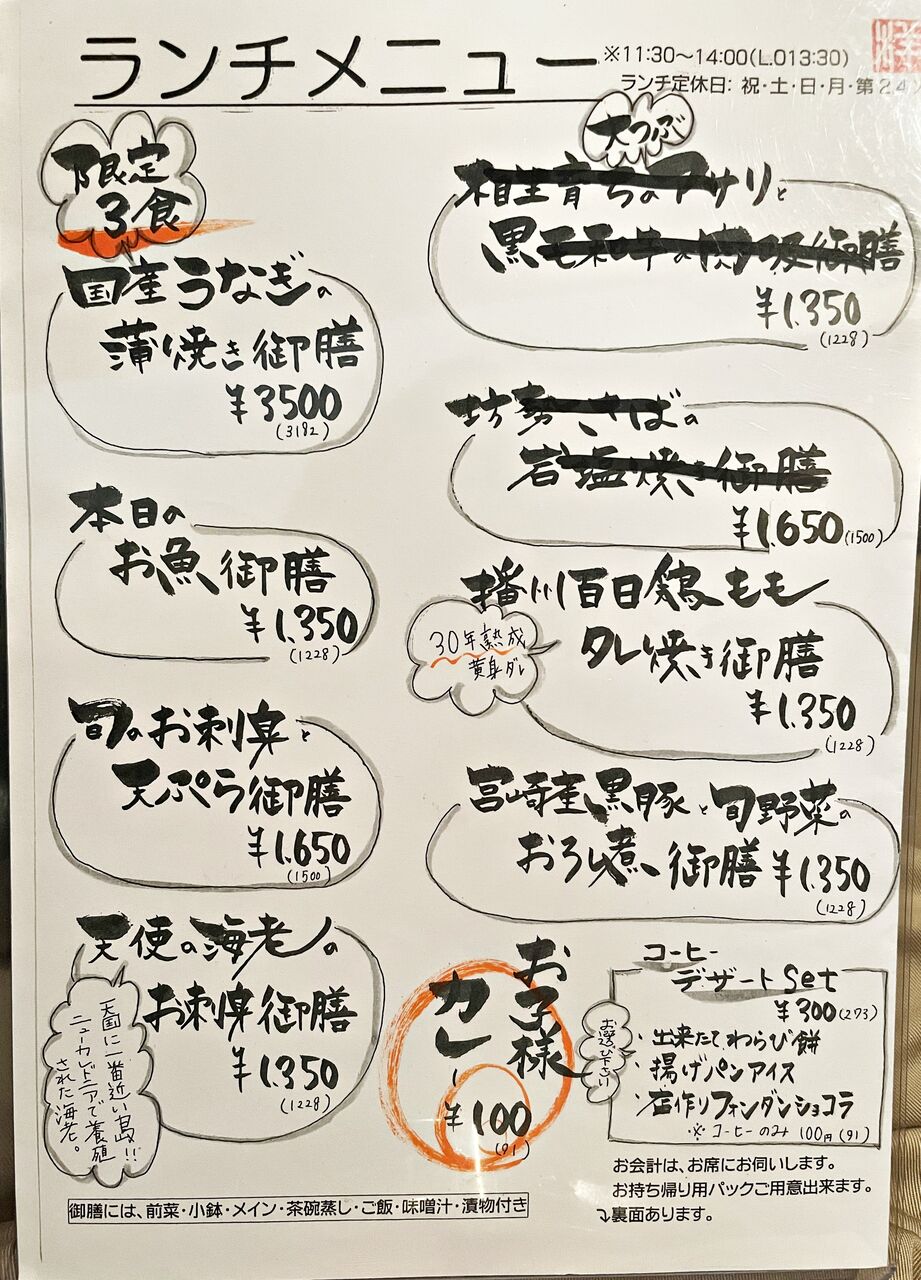 ランチメニュー
※11:30〜14:00(L.O13:30)
ランチ定休日: 祝・土・日・月・第24
限定
3食
国産うなぎの
蒲焼き御膳
¥3500
(3182)
本日の
お魚御膳
¥1.350
(1228)
旬のお刺身と
天ぷら御膳
¥1.650
(1500)
天使の海老の
お刺身御膳
¥1.350
(1228)
天国に一番近い島!!
ニューカレドニアで養殖
された海老。
大つぶ
相生育ちのアサリと
黒毛和牛の御膳
¥1.350
(1228)
坊勢さばの
岩塩焼き御膳
¥1.650(1500)
播州百日鶏もも
タレ焼き御膳
¥1.350
(1228)
30年熟成
黄身ダレ
宮崎産黒豚と旬野菜の
おろし煮御膳 ¥1.350
(1228)
お子様
カレー
¥100
(91)
コーヒー
デザートSet
¥300(273)
お選び下さい
・出来たてわらび餅
・揚げパンアイス
・店作りフォンダンショコラ
※コーヒーのみ 100円(91)
お会計は、お席にお伺いします。
お持ち帰り用パックご用意出来ます。
裏面あります。
御膳には、前菜・小鉢・メイン・茶碗蒸し・ご飯・味噌汁・漬物付き